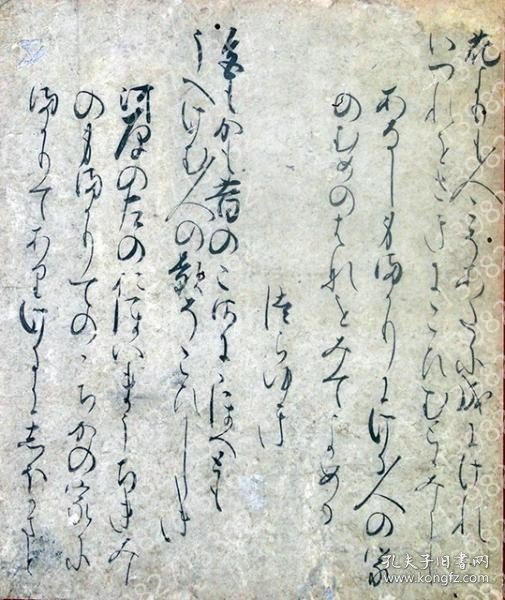 花よりも人こそあたに成にけれ
いつれをさきにこひむとかみし
あるし身まかりにける人の家
のむめのはなをみてよめる
つらゆき
色もかも昔のこさににほへとも
うへけむ人の影そこひしき
河原の左のおほいまうちきみ
の身まかりてのゝちかの家に
まかりてありけるにしほかまと
孔夫子旧书网
www.kongfz.com